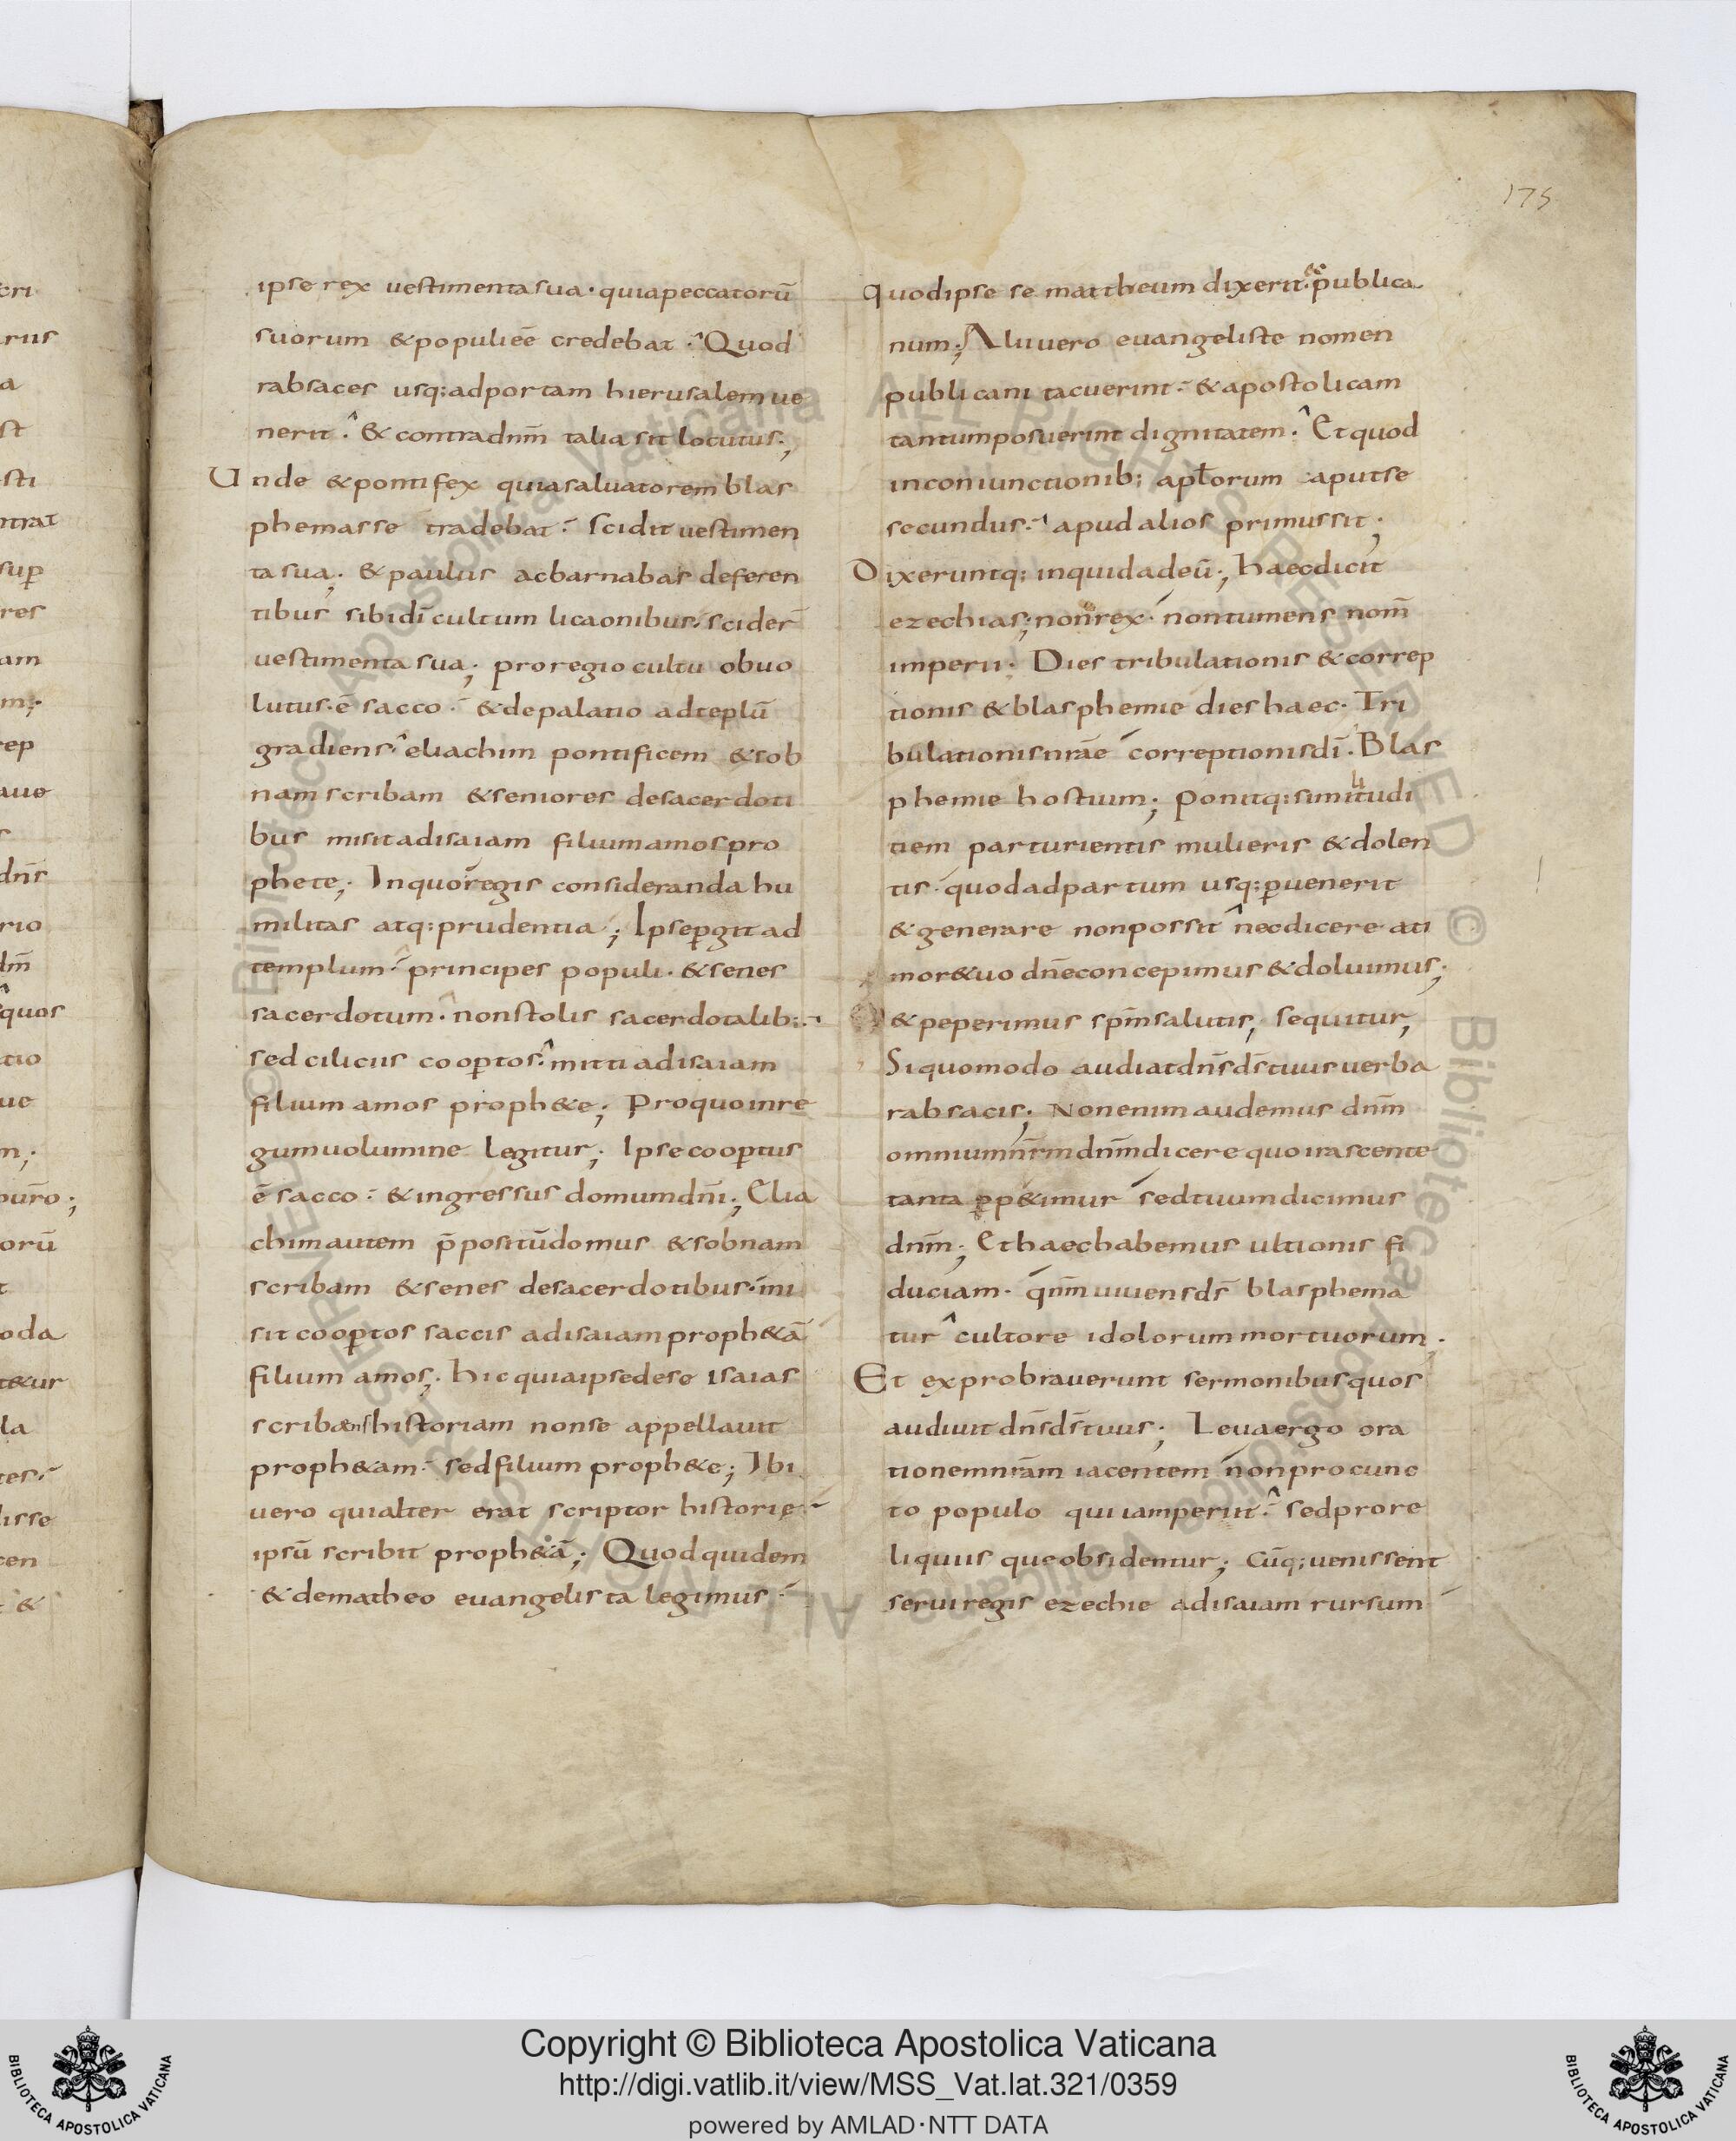 175
ipse rex uestimenta sua · quia peccatorū
suorum & populi eē credebat · Quod
rabsaces usq; ad portam hierusalem ue
nerit · & contra dnm̄ talia sit locutus ;
Unde & pontifex quia saluatorem blas
phemasse tradebat · scidit uestimen
ta sua ; & paulus ac barnabas deferen
tibus sibi dī cultum licaonibus · scider̄
uestimenta sua ; pro regio cultu obuo
lutus · ē sacco · & de palatio ad teplū
gradiens · eliachim pontificem & sob
nam scribam & seniores de sacerdoti
bus misit ad isaiam filium amos pro
phete ; In quo regis consideranda hu
militas atq; prudentia ; Ipse ꝑgit ad
templum · principes populi · & senes
sacerdotum · non stolis sacerdotalib; ·
sed ciliciis cooꝑtos · mitti ad isaiam
filium amos proph&e ; Pro quo in re
gum uolumine legitur ; Ipse cooꝑtus
ē sacco · & ingressus domum dnī ; Elia
chim autem p̄positū domus & sobnam
scribam & senes de sacerdotibus · mi
sit cooꝑtos saccis ad isaiam proph&ā
filium amos ; hic quia ipse de se isaias
scribens historiam non se appellauit
proph&am · sed filium proph&e ; Ibi
uero qui alter erat scriptor historię ·
ipsū scribit proph&ā ; Quod quidem
& de matheo euangelista legimus ·
quod ipse se mattheum dixerit · & publica
num ; Alii uero euangeliste nomen
publicani tacuerint · & apostolicam
tantum posuerint dignitatem · Et quod
in coniunctionib; apłorum caput se
secundus · apud alios primus sit ;
Dixeruntq; inquid ad eū ; haec dicit
ezechias ; non rex · non tumens nom̄
imperii · Dies tribulationis & correp
tionis & blasphemie dies haec · Tri
bulationis nr̄ae correptionis dī · Blas
phemie hostium ; Ponitq; similitudi
nem parturientis mulieris & dolen
tis · quod ad partum usq; ꝑuenerit
& generare non possit nec dicere a ti
more &uo dn̄e concepimus & doluimus ;
& peperimus spm̄ salutis ; sequitur ;
Si quomodo audiat dn̄s ds̄ tuus uerba
rabsacis ; Non enim audemus dnm̄
omnium nr̄m dnm̄ dicere quo irascente
tanta ꝑp&imur sed tuum dicimus
dnm̄ ; Et haec habemus ultionis fi
duciam · qn̄m uiuens ds̄ blasphema
tur cultore idolorum mortuorum ;
Et exprobrauerunt sermonibus quos
audiuit dn̄s ds̄ tuus ; Leua ergo ora
tionem nr̄am iacentem non pro cunc
to populo qui iam periit · sed pro re
liquiis que obsidentur ; cūq; uenissent
serui regis ezechie ad isaiam rursum
Copyright © Biblioteca Apostolica Vaticana
http://digi.vatlib.it/view/MSS_Vat.lat.321/0359
powered by AMLAD·NTT DATA
BIBLIOTECA APOSTOLICA VATICANA
BIBLIOTECA APOSTOLICA VATICANA